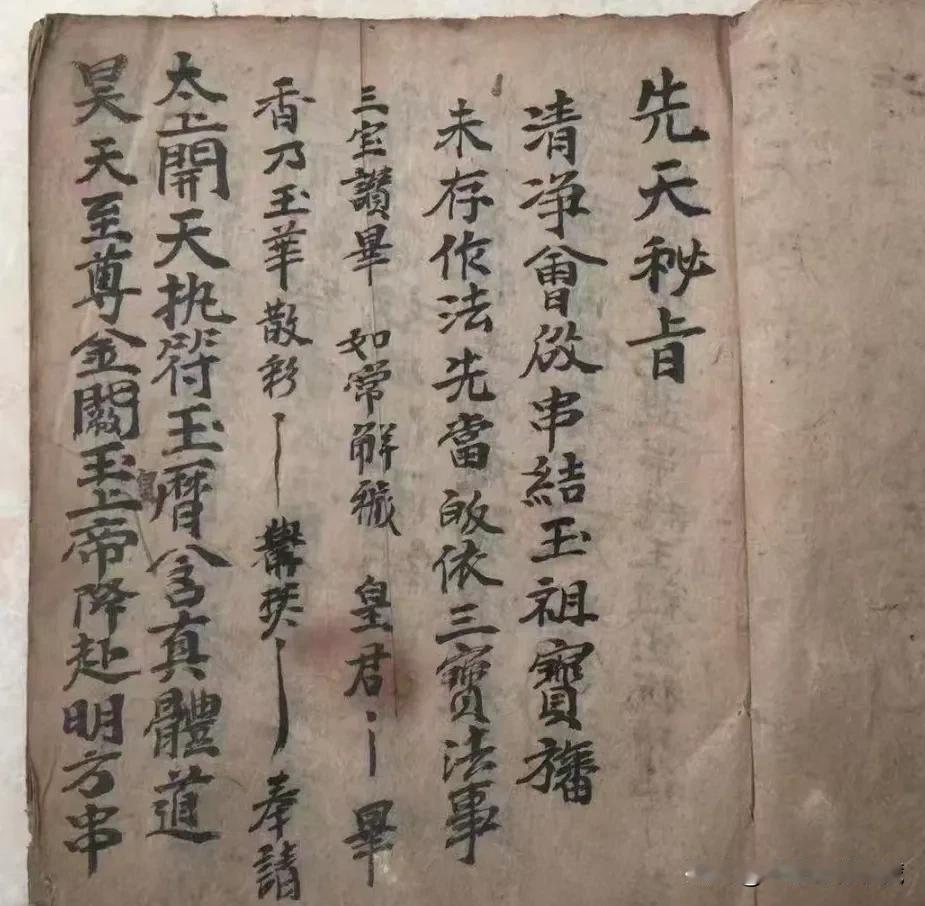 先天秘旨
清净會啟串結玉祖寶旛
未存作法先當皈依三寶法事
三宝讚畢 如常解穢 皇君 畢
香乃玉華散彩 奉請
太上開天执符玉暦含真體道
昊天至尊金闕玉上帝降赴明方串